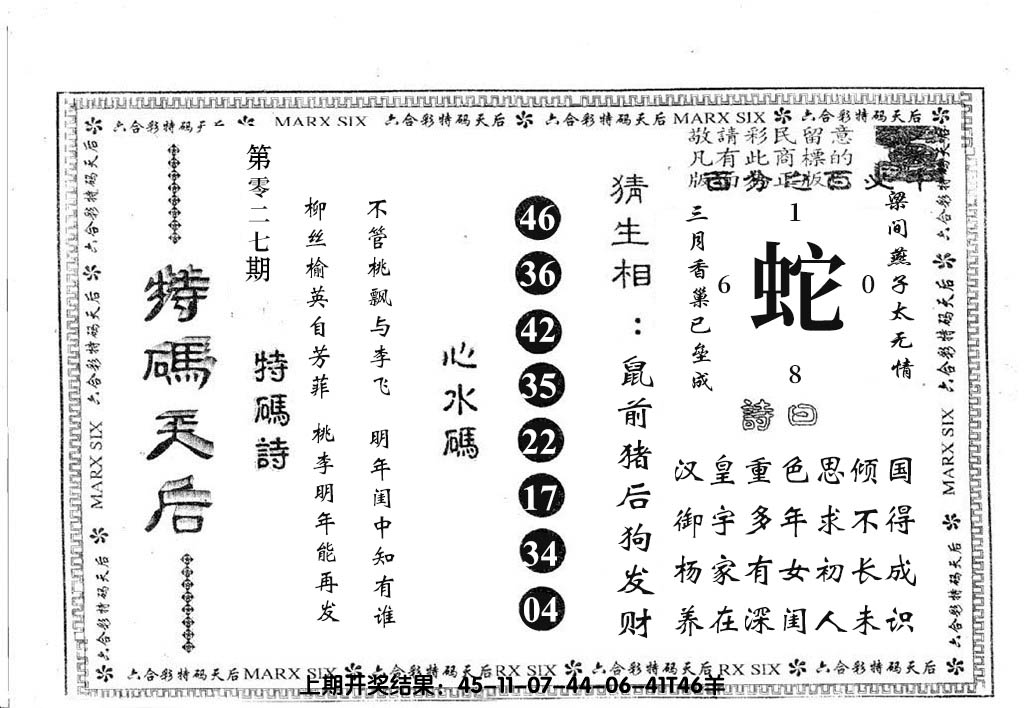 六合彩特码天后 MARX SIX 六合彩特码天后 六合彩特码天后 MARX SIX 六合彩特码天后
敬請彩民留意
凡有此商標的
特碼天后
第零二七期
特碼詩
柳丝榆英自芳菲 桃李明年能再发
不管桃飘与李飞 明年闺中知有谁
心水碼
46
36
42
35
22
17
34
04
猜生相：鼠前猪后狗发财
三月香巢已垒成
1
6
蛇
0
8
梁间燕子太无情
詩曰
汉皇重色思倾国
御宇多年求不得
杨家有女初长成
养在深闺人未识
六合彩特码天后
MARX SIX
六合彩特码天后
六合彩特码天后
MARX SIX
六合彩特码天后
六合彩特码天后 MARX SIX 六合彩特码天后 RX SIX 六合彩特码天后 RX SIX 六合彩特码天后
上期开奖结果：45-11-07-44-06-41T46羊